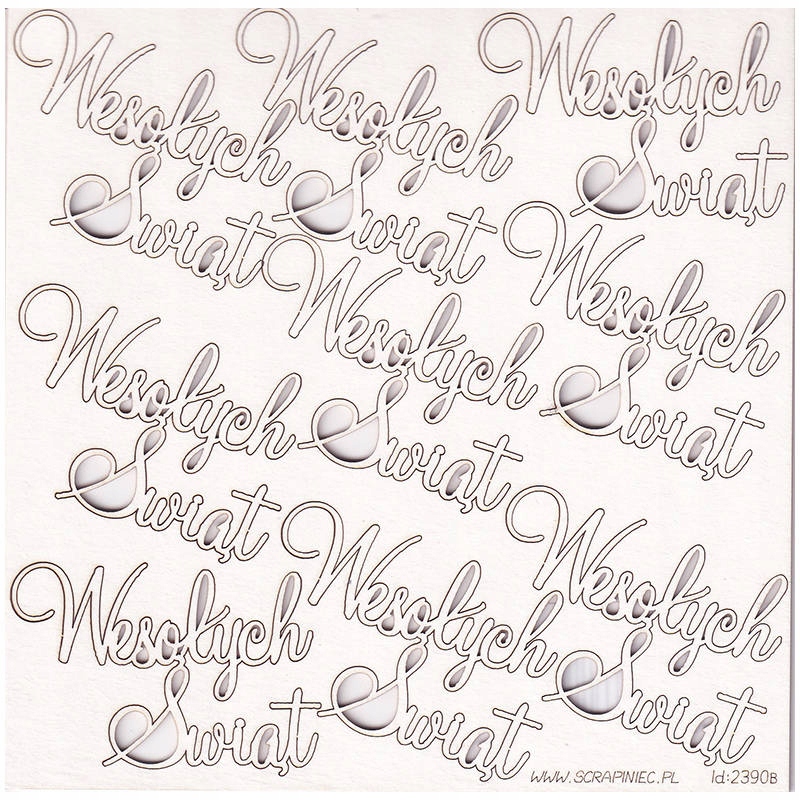 Wesołych
Świąt
Wesołych
Świąt
Wesołych
Świąt
Wesołych
Świąt
Wesołych
Świąt
Wesołych
Świąt
Wesołych
Świąt
Wesołych
Świąt
Wesołych
Świąt
WWW.SCRAPINIEC.PL Id:2390B